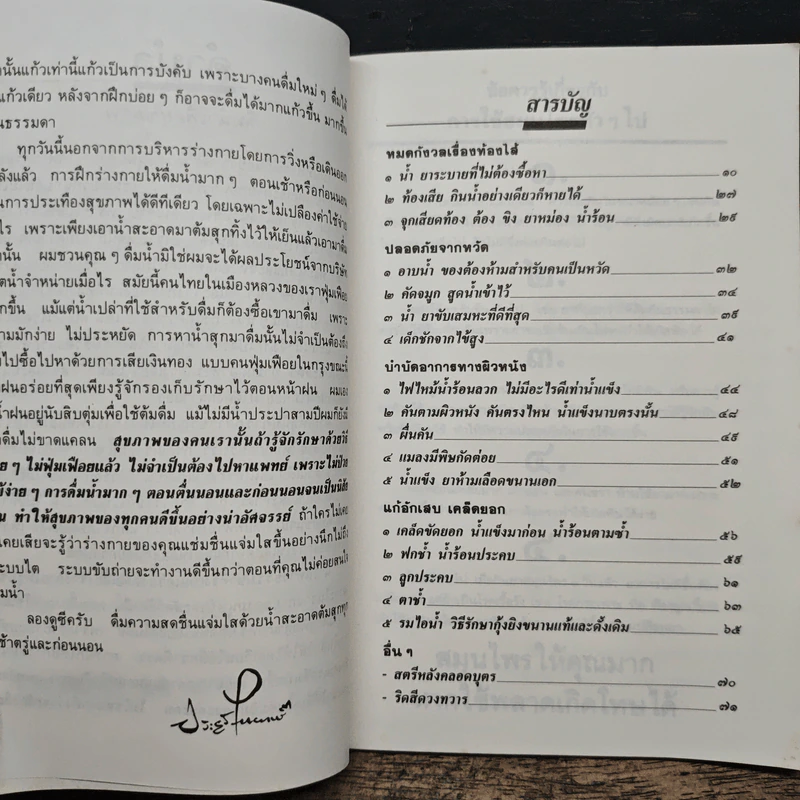 นั้นแก้วเท่านี้แก้วเป็นการบังคับ เพราะบางคนดื่มใหม่ ๆ ดื่มได้
แก้วเดียว หลังจากฝึกบ่อย ๆ ก็อาจจะดื่มได้มากแก้วขึ้น มากขึ้น
นธรรมดา
ทุกวันนี้นอกจากการบริหารร่างกายโดยการวิ่งหรือเดินออก
ลังแล้ว การฝึกร่างกายให้ดื่มน้ำมาก ๆ ตอนเช้าหรือก่อนนอน
นการประเทืองสุขภาพได้ดีทีเดียว โดยเฉพาะไม่เปลืองค่าใช้จ่าย
ไร เพราะเพียงเอาน้ำสะอาดมาต้มสุกทิ้งไว้ให้เย็นแล้วเอามาดื่ม
านั้น ผมชวนคุณ ๆ ดื่มน้ำมิใช่ผมจะได้ผลประโยชน์จากบริษัท
ตน้ำจำหน่ายเมื่อไร สมัยนี้คนไทยในเมืองหลวงของเราฟุ่มเฟือย
กขึ้น แม้แต่น้ำเปล่าที่ใช้สำหรับดื่มก็ต้องซื้อเขามาดื่ม เพราะ
ามมักง่าย ไม่ประหยัด การหาน้ำสุกมาดื่มนั้นไม่จำเป็นต้องถึง
บไปซื้อไปหาด้วยการเสียเงินทอง แบบคนฟุ่มเฟือยในกรุงขณะนี้
ฝนอร่อยที่สุดเพียงรู้จักรองเก็บรักษาไว้ตอนหน้าฝน ผมเอง
น้ำฝนอยู่นับสิบตุ่มเพื่อใช้ต้มดื่ม แม้ไม่มีน้ำประปาสามปีผมก็ยังมี
าดื่มไม่ขาดแคลน สุขภาพของคนเรานั้นถ้ารู้จักรักษาด้วยวิธี
าย ๆ ไม่ฟุ่มเฟือยแล้ว ไม่จำเป็นต้องไปหาแพทย์ เพราะไม่ป่วย
ข้ง่าย ๆ การดื่มน้ำมาก ๆ ตอนตื่นนอนและก่อนนอนจนเป็นนิสัย
น ทำให้สุขภาพของทุกคนดีขึ้นอย่างน่าอัศจรรย์ ถ้าใครไม่เคย
เคยเสียจะรู้ว่าร่างกายของคุณแช่มชื่นแจ่มใสขึ้นอย่างนึกไม่ถึง
ะบบไต ระบบขับถ่ายจะทำงานดีขึ้นกว่าตอนที่คุณไม่ค่อยสนใจ
มน้ำ
ลองดูซีครับ ดื่มความสดชื่นแจ่มใสด้วยน้ำสะอาดต้มสุกทุก
ช้าตรู่และก่อนนอน
สารบัญ
หมดกังวลเรื่องท้องไส้
๑ น้ำ ยาระบายที่ไม่ต้องซื้อหา ๑๐
๒ ท้องเสีย กินน้ำอย่างเดียวก็หายได้ ๒๗
๓ จุกเสียดท้อง ต้อง ขิง ยาหม่อง น้ำร้อน ๒๙
ปลอดภัยจากหวัด
๑ อาบน้ำ ของต้องห้ามสำหรับคนเป็นหวัด ๓๒
๒ คัดจมูก สูดน้ำเข้าไว้ ๓๔
๓ น้ำ ยาขับเสมหะที่ดีที่สุด ๓๙
๔ เด็กชักจากไข้สูง ๔๑
บำบัดอาการทางผิวหนัง
๑ ไฟไหม้น้ำร้อนลวก ไม่มีอะไรดีเท่าน้ำแข็ง ๔๔
๒ คันตามผิวหนัง คันตรงไหน น้ำแข็งนาบตรงนั้น ๔๘
๓ ผื่นคัน ๔๙
๔ แมลงมีพิษกัดต่อย ๕๑
๕ น้ำแข็ง ยาห้ามเลือดขนานเอก ๕๒
แก้อักเสบ เคล็ดยอก
๑ เคล็ดขัดยอก น้ำแข็งมาก่อน น้ำร้อนตามซ้ำ ๕๖
๒ ฟกช้ำ น้ำร้อนประคบ ๕๙
๓ ลูกประคบ ๖๑
๔ ตาช้ำ ๖๓
๕ รมไอน้ำ วิธีรักษากุ้งยิงขนานแท้และดั้งเดิม ๖๕
อื่น ๆ
- สตรีหลังคลอดบุตร ๗๐
- ริดสีดวงทวาร ๗๑